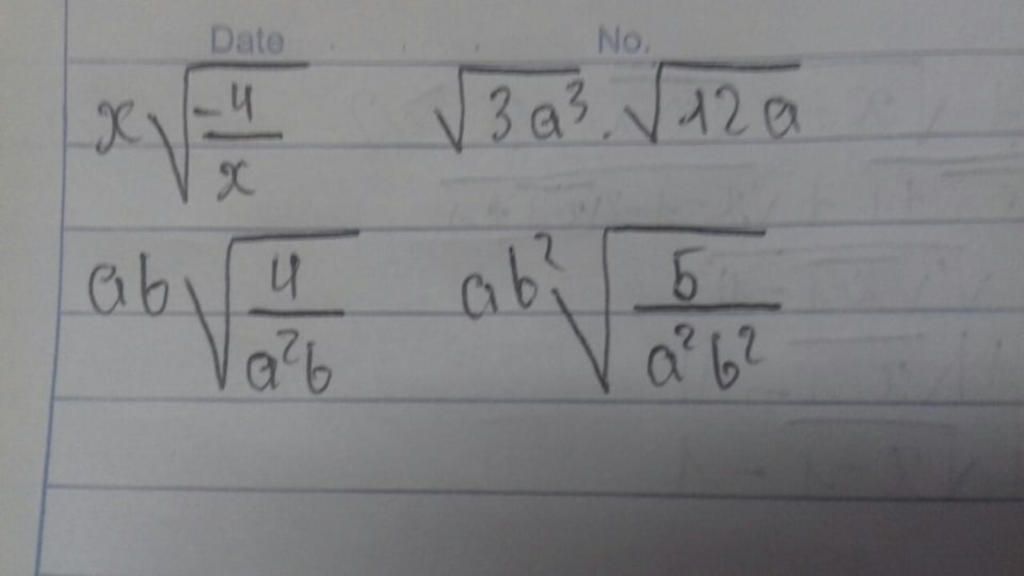 Date No.
x√(-4/x) √3a³ . √12a
ab√(4/a²b) ab²√(5/a²b²)